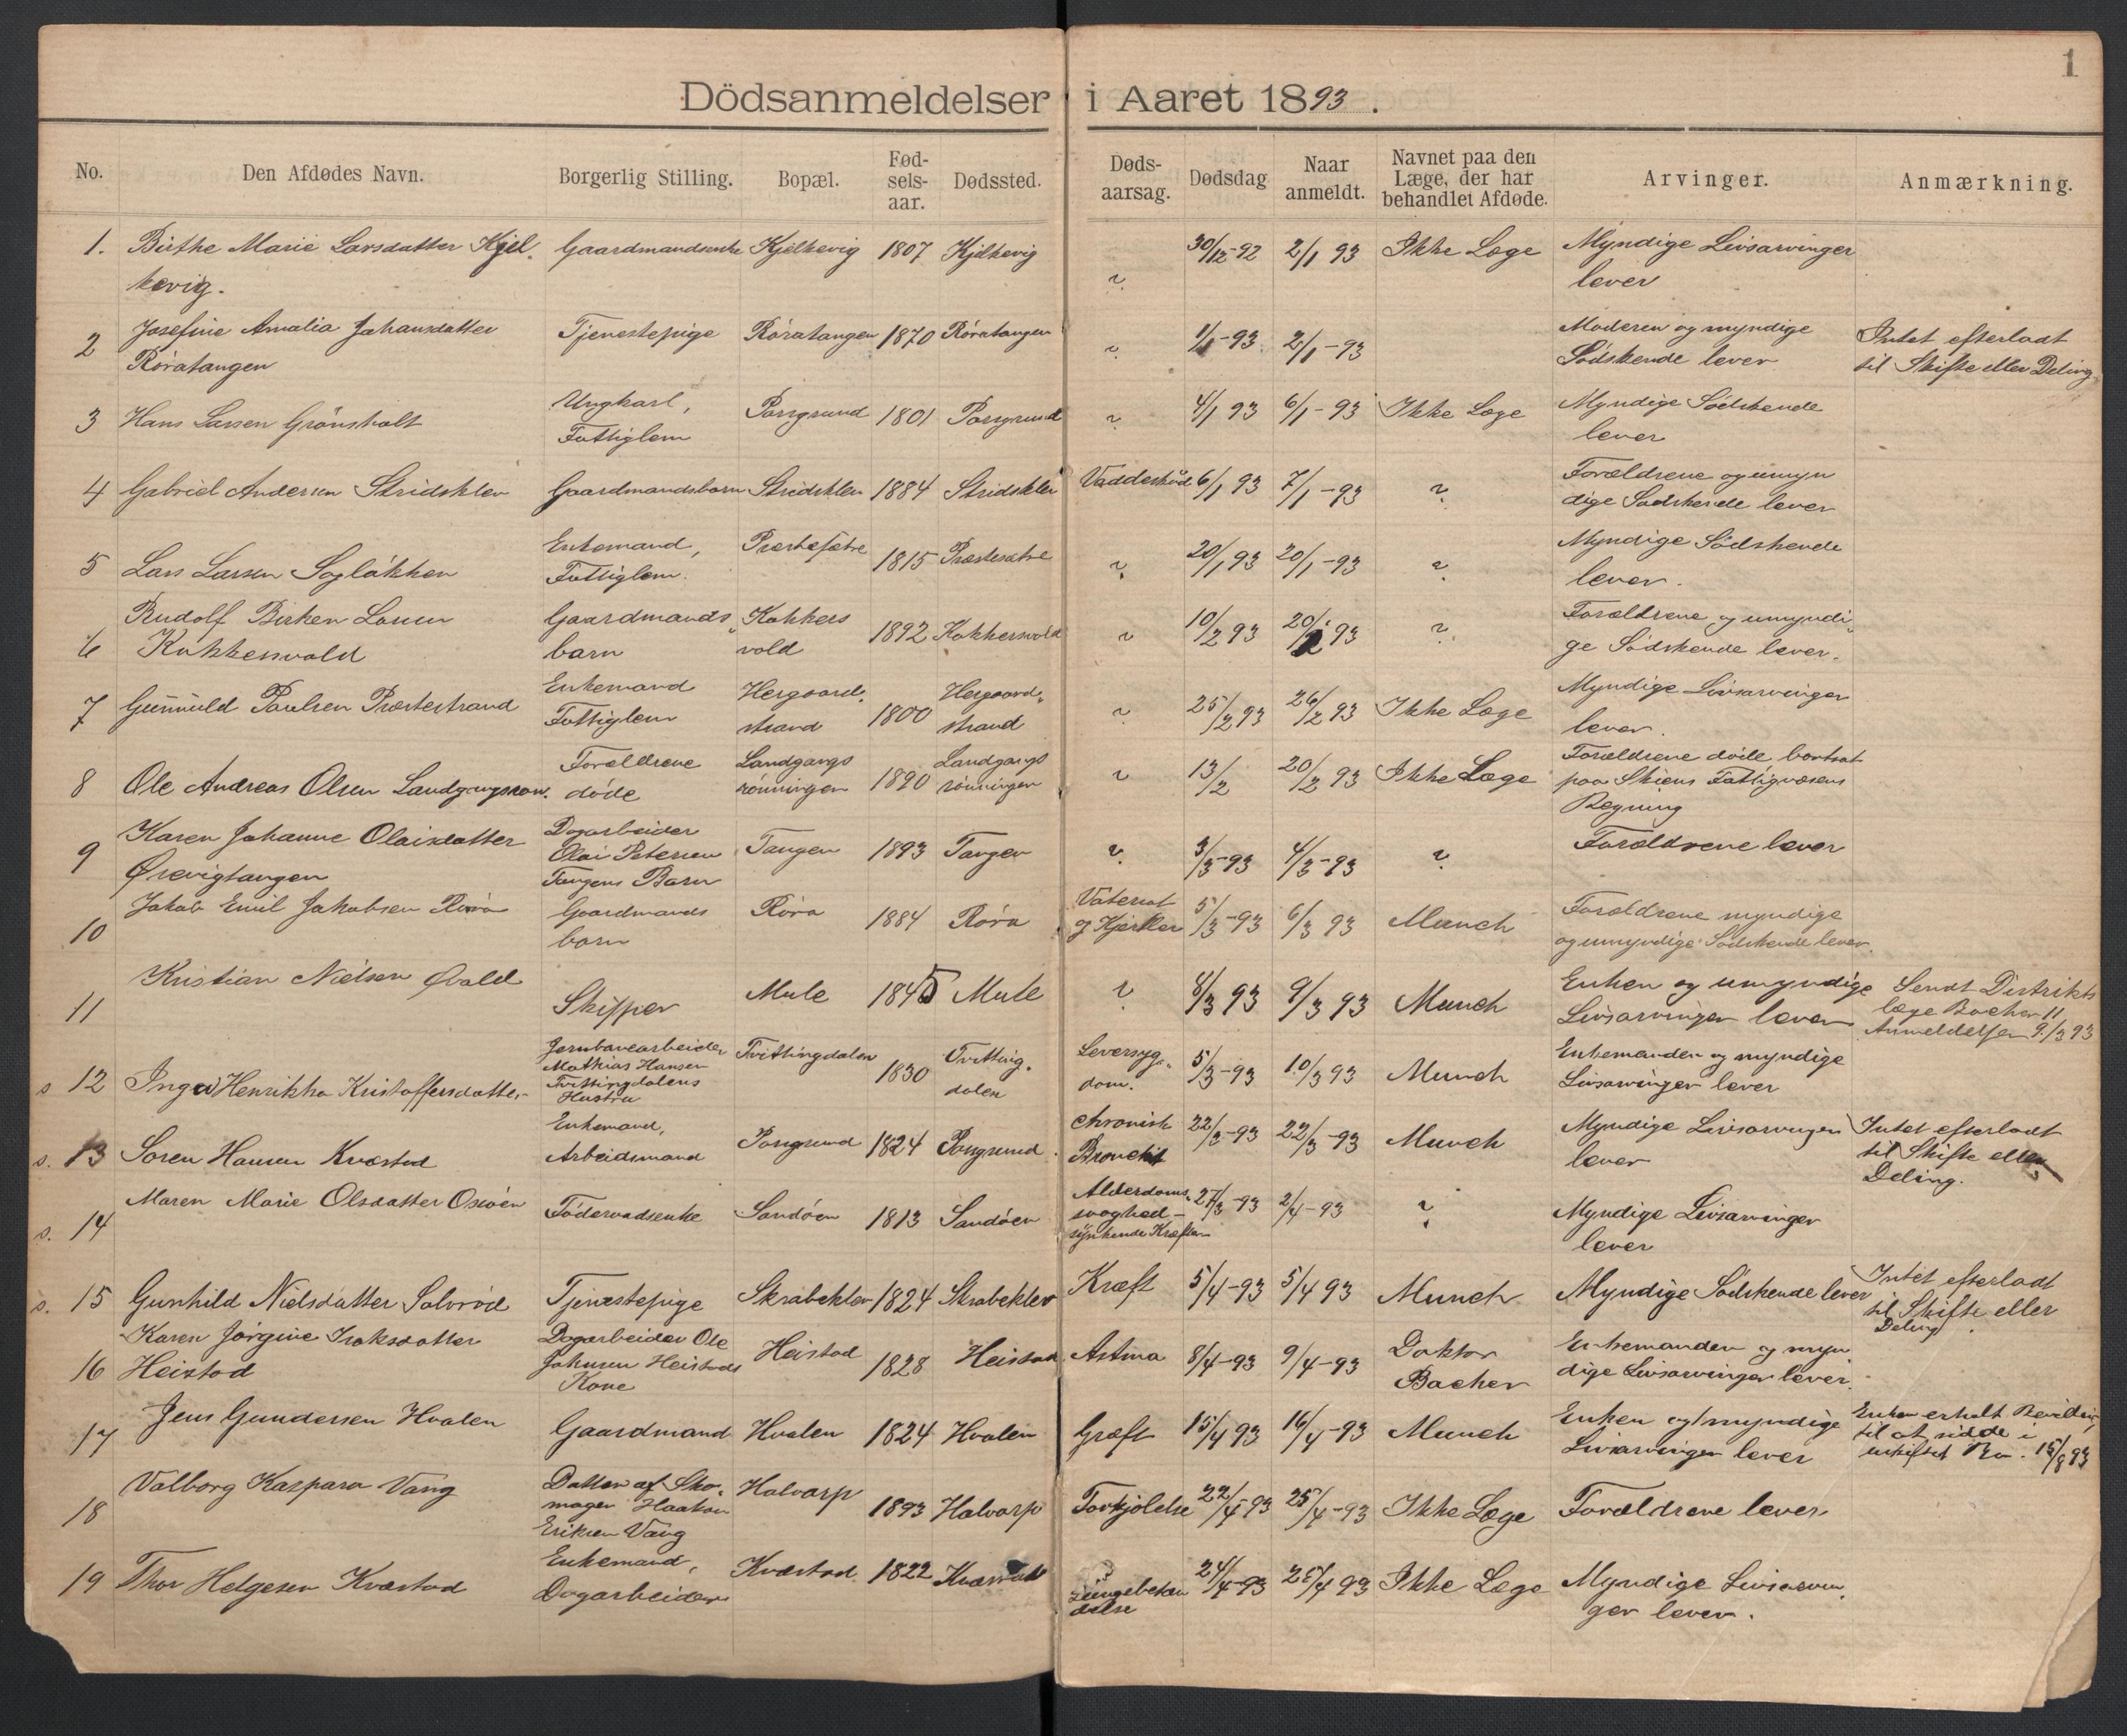 1
Dödsanmeldelser i Aaret 1893.
No. Den Afdødes Navn. Borgerlig Stilling. Bopæl. Fød-sels-aar. Dødssted. Døds-aarsag. Dødsdag Naar anmeldt. Navnet paa den Læge, der har behandlet Afdøde. Arvinger. Anmærkning.
1. Birthe Marie Larsdatter Kjel- Gaardmandsenke Kjelkevig 1807 Kjelkevig ? 30/12-92 2/1 93 Ikke Læge Myndige Livsarvinger
kevig. lever
2 Josefine Amalia Johansdatter Tjenestepige Røratangen 1870 Røratangen ? 1/1-93 2/1-93 Moderen og myndige Intet efterladt
Røratangen Södskende lever til Skifte eller Deling
3 Hans Larsen Grönsholt Ungkarl, Porsgrund 1801 Porsgrund ? 4/1 93 6/1-93 Ikke Læge Myndige Södskende
Fattiglem lever
4 Gabriel Andersen Stridsklev Gaardmandsbarn Stridsklev 1884 Stridsklev 6/1 93 7/1-93 ? Forældrene og umyn
dige Södskende lever
5 Lars Larsen Enkemand, 1815 ? 20/1 93 20/1-93 ? Myndige Södskende
Fattiglem. lever.
6 Rudolf Birken Larsen Gaardmands Kokkers 1892 Kokkersvold ? 10/2 93 20/2 93 ? Forældrene og umyndi-
Kokkersvold barn vold ge Södskende lever.
7 Gunnuld Paulsen Præstestrand Enkemand Hergaard- 1800 Hergaard- ? 25/2 93 26/2 93 Ikke Læge Myndige Livsarvinger
Fattiglem strand strand lever.
8 Ole Andreas Olsen Landgangsrøn. Forældrene Landgangs 1890 Landgangs ? 13/2 20/2 93 Ikke Læge Forældrene døde, bortsat
døde rønningen rønningen paa Skiens Fattigvæsens
Regning
9 Karen Johanne Olaisdatter Dagarbeider Tangen 1893 Tangen ? 3/3-93 4/3-93 ? Forældrene lever
Ørvigtangen Olai Petersen
Tangens Barn
10 Jakob Emil Jakobsen Røra Gaardmands Røra 1884 Røra Vatersot 5/3-93 6/3 93 Munch Forældrene myndige
barn og umyndige Södskende lever.
11 Kristian Nielsen Øvald Skipper Mule 1845 Mule ? 8/3 93 9/3 93 Munch Enken og umyndige Sendt Distrikts
Livsarvinger lever læge Bacher 11
Anmeldelser 9/3 93
s 12 Inga Henrikka Kristoffersdatter Jernbanearbeider Tvittingdalen 1830 Tvitting- Leversyg- 5/3-93 10/3 93 Munch Enkemanden og myndige
Mathias Hansen dalen dom. Livsarvinger lever
Tvittingdalens
Hustru
s. 13 Søren Hansen Kvæstad Enkemand, Porsgrund 1824 Porsgrund. chronisk 22/3-93 22/3-93 Munch Myndige Livsarvinger Intet efterladt
Arbeidsmand Bronchit lever til Skifte eller
Deling.
s. 14 Maren Marie Olsdatter Osøen Föderaadsenke Sandöen 1813 Sandöen Alderdoms- 27/3-93 2/4-93 ? Myndige Livsarvinger
svaghed - lever
synkende Kræfter
s. 15 Gunhild Nielsdatter Solvrød Tjenestepige Skrabeklev 1824 Skrabeklev Kræft 5/4-93 5/4 93 Munch Myndige Södskende lever Intet efterladt
til Skifte eller
Deling.
16 Karen Jørgine Isaksdatter Dagarbeider Ole Heistad 1828 Heistad Astma 8/4-93 9/4-93 Doktor Enkemanden og myn
Heistad Johnsen Heistads Bacher dige Livsarvinger lever.
Kone
17 Jens Gundersen Hvalen Gaardmand Hvalen 1824 Hvalen Græft 15/4 93 16/4-93 Munch Enken og myndige Enken erholt Bevilling
Livsarvinger lever til at sidde i
uskiftet Bo. 15/8 93
18 Valborg Kaspara Vang Datter af Sko- Halvarp 1893 Halvarp Forkjölelse 22/4-93 25/4-93 Ikke Læge Forældrene lever
mager Haakon
Eriksen Vang
19 Thor Helgesen Kvæstad Enkemand, Kvæstad 1822 Kvæstad Lungebetæn 24/4-93 25/4 93 Ikke Læge Myndige Livsarvin
Dagarbeider delse ger lever.